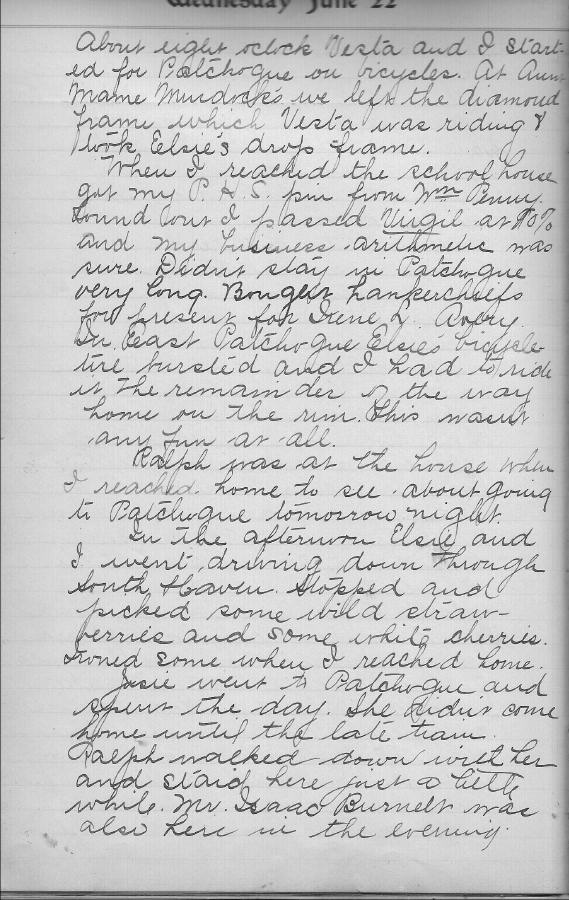 Wednesday June 22
About eight oclock Vesta and I start-
ed for Patchogue on bicycles. At Aunt
Mame Murdock's we left the diamond
frame which Vesta was riding &
took Elsie's drop frame.
When I reached the school house
got my P. H. S. pin from Wm Penny.
Found out I passed Virgil at 70%
and my business arithmetic was
sure. Didn't stay in Patchogue
very long. Bought hankerchiefs
for present for Irene L. Avery.
In East Patchogue Elsie's bicycle
tire bursted and I had to ride
it the remainder of the way
home on the rim. This wasn't
any fun at all.
Ralph was at the house when
I reached home to see about going
to Patchogue tomorrow night.
In the afternoon Elsie and
I went driving down through
South Haven. Stopped and
picked some wild straw-
berries and some white cherries.
some when I reached home.
Josie went to Patchogue and
spent the day. She didn't come
home until the late train.
Ralph walked down with her
and staid here just a little
while. Mr. Isaac Burnett was
also here in the evening.